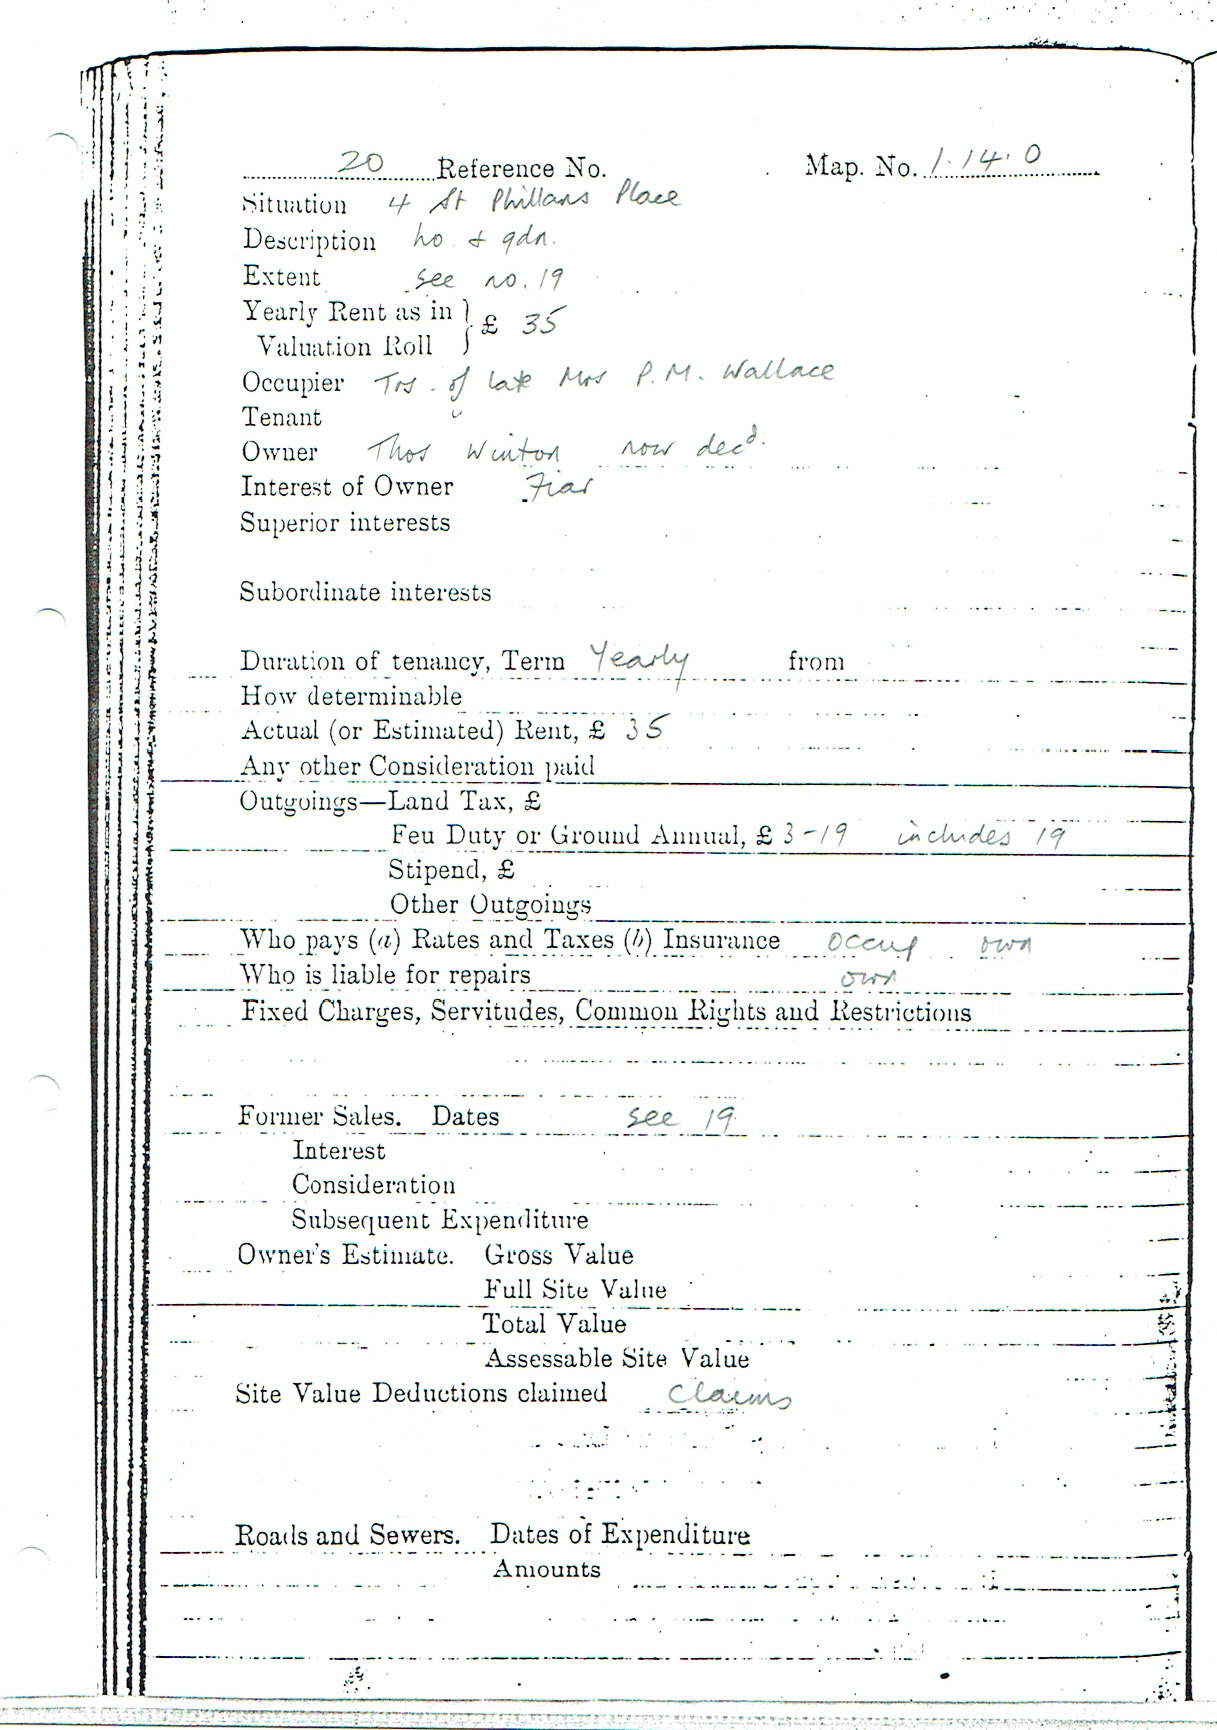 20 Reference No. Map. No. 1.14.0
Situation 4 St Phillans Place
Description ho. & gdn.
Extent see no. 19
Yearly Rent as in
Valuation Roll } £ 35
Occupier Trs. of late Mrs P.M. Wallace
Tenant "
Owner Thos Winton now decd.
Interest of Owner Fiar
Superior interests
Subordinate interests
Duration of tenancy, Term Yearly from
How determinable
Actual (or Estimated) Rent, £ 35
Any other Consideration paid
Outgoings—Land Tax, £
Feu Duty or Ground Annual, £ 3-19 includes 19
Stipend, £
Other Outgoings
Who pays (a) Rates and Taxes (b) Insurance occup own
Who is liable for repairs own
Fixed Charges, Servitudes, Common Rights and Restrictions
Former Sales. Dates see 19
Interest
Consideration
Subsequent Expenditure
Owner's Estimate. Gross Value
Full Site Value
Total Value
Assessable Site Value
Site Value Deductions claimed Claims
Roads and Sewers. Dates of Expenditure
Amounts